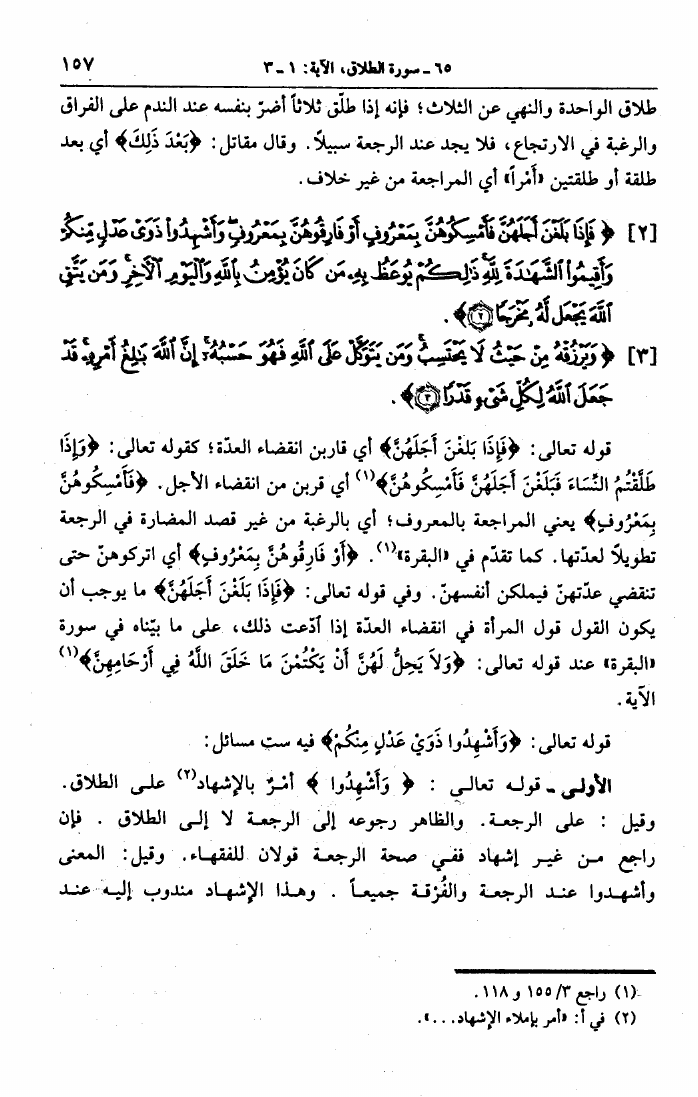 ٦٥ ـ سورة الطلاق، الآية: ١ ـ ٣
١٥٧
طلاق الواحدة والنهي عن الثلاث؛ فإنه إذا طلّق ثلاثاً أضرّ بنفسه عند الندم على الفراق
والرغبة في الارتجاع، فلا يجد عند الرجعة سبيلاً. وقال مقاتل: ﴿بَعْدَ ذَلِكَ﴾ أي بعد
طلقة أو طلقتين «أَمْراً» أي المراجعة من غير خلاف.
[٢] ﴿ فَإِذَا بَلَغْنَ أَجَلَهُنَّ فَأَمْسِكُوهُنَّ بِمَعْرُوفٍ أَوْ فَارِقُوهُنَّ بِمَعْرُوفٍ وَأَشْهِدُوا ذَوَىْ عَدْلٍ مِّنكُمْ
وَأَقِيمُوا الشَّهَادَةَ لِلَّهِ ذَلِكُمْ يُوعَظُ بِهِ مَن كَانَ يُؤْمِنُ بِاللَّهِ وَالْيَوْمِ الْآخِرِ وَمَن يَتَّقِ
اللَّهَ يَجْعَل لَّهُ مَخْرَجًا ٢﴾.
[٣] ﴿ وَيَرْزُقْهُ مِنْ حَيْثُ لَا يَحْتَسِبُ وَمَن يَتَوَكَّلْ عَلَى اللَّهِ فَهُوَ حَسْبُهُ إِنَّ اللَّهَ بَالِغُ أَمْرِهِ قَدْ
جَعَلَ اللَّهُ لِكُلِّ شَىْءٍ قَدْرًا ٣﴾.
قوله تعالى: ﴿فَإِذَا بَلَغْنَ أَجَلَهُنَّ﴾ أي قاربن انقضاء العدّة؛ كقوله تعالى: ﴿وَإِذَا
طَلَّقْتُمُ النِّسَاءَ فَبَلَغْنَ أَجَلَهُنَّ فَأَمْسِكُوهُنَّ﴾(١) أي قربن من انقضاء الأجل. ﴿فَأَمْسِكُوهُنَّ
بِمَعْرُوفٍ﴾ يعني المراجعة بالمعروف؛ أي بالرغبة من غير قصد المضارة في الرجعة
تطويلاً لعدّتها. كما تقدّم في «البقرة»(١). ﴿أَوْ فَارِقُوهُنَّ بِمَعْرُوفٍ﴾ أي اتركوهنّ حتى
تنقضي عدّتهنّ فيملكن أنفسهنّ. وفي قوله تعالى: ﴿فَإِذَا بَلَغْنَ أَجَلَهُنَّ﴾ ما يوجب أن
يكون القول قول المرأة في انقضاء العدّة إذا ٱدّعت ذلك، على ما بيّناه في سورة
«البقرة» عند قوله تعالى: ﴿وَلاَ يَحِلُّ لَهُنَّ أَنْ يَكْتُمْنَ مَا خَلَقَ اللَّهُ فِي أَرْحَامِهِنَّ﴾(١)
الآية.
قوله تعالى: ﴿وَأَشْهِدُوا ذَوَيْ عَدْلٍ مِنكُمْ﴾ فيه ست مسائل:
الأولى ـ قوله تعالى : ﴿ وَأَشْهِدُوا ﴾ أمْرٌ بالإشهاد(٢) على الطلاق.
وقيل : على الرجعة. والظاهر رجوعه إلى الرجعة لا إلى الطلاق . فإن
راجع من غير إشهاد ففي صحة الرجعة قولان للفقهاء. وقيل: المعنى
وأشهدوا عند الرجعة والفُرْقة جميعاً . وهذا الإشهاد مندوب إليه عند
(١) راجع ١٥٥/٣ و ١١٨.
(٢) في أ: «أمر بإملاء الإشهاد...».